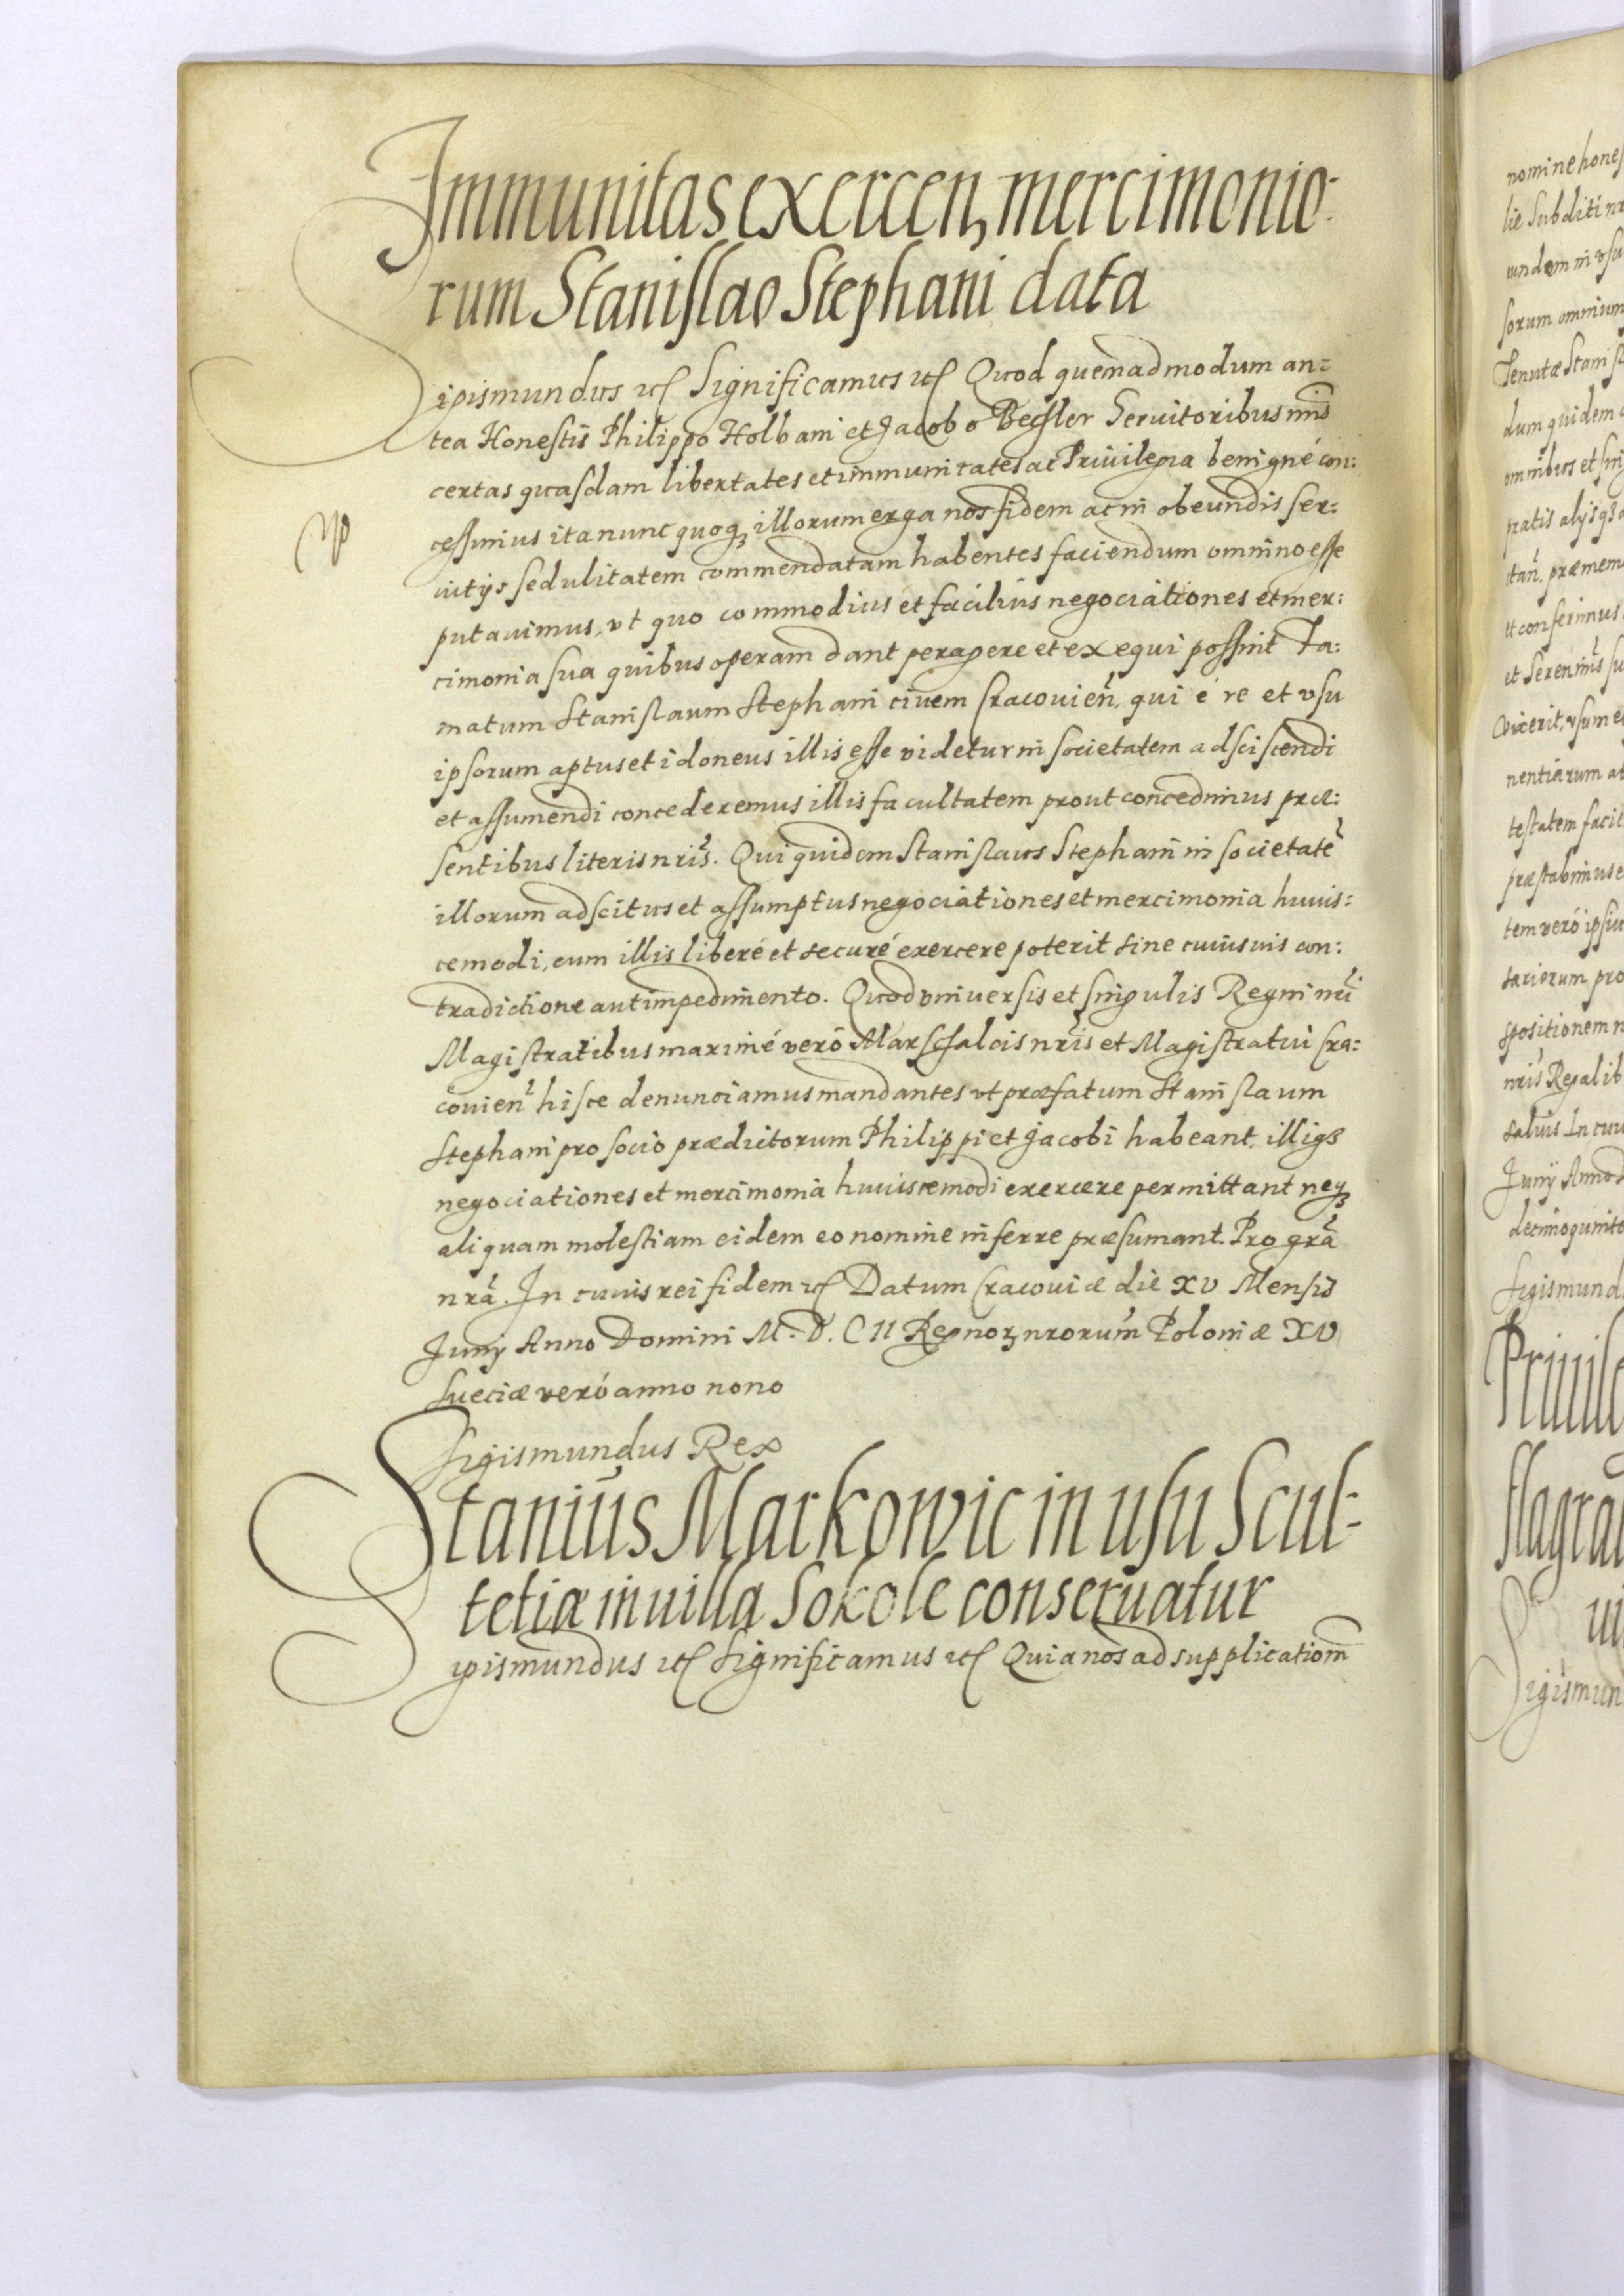 Immunitas exercen, mercimonio-
rum Stanislao Stephani data
Sigismundus etc Significamus etc Quod quemadmodum an-
tea Honestis Philippo Holbani et Jacobo Bechler Seruitoribus nris
certas quasdam libertates et immunitates ac Priuilegia benigné con:
cessimus ita nunc quoq illorum erga nos fidem ac in obeundis ser:
uitijs sedulitatem commendatam habentes faciendum omnino esse
putauimus, vt quo commodius et facilius negociationes et mer:
cimonia sua quibus operam dant peragere et exequi possint Fa:
matum Stanislaum Stephani ciuem Cracouien, qui é re et vsu
ipsorum aptus et idoneus illis esse videtur in societatem adsciscendi
et assumendi concederemus illis facultatem prout concedimus præ:
sentibus literis nris. Qui quidem Stanislaus Stephani in societatē
illorum adscitus et assumptus negociationes et mercimonia huius:
cemodi, cum illis liberé et securé exercere poterit sine cuiusuis con:
tradictione aut impedimento. Quod vniuersis et singulis Regni nri
Magistratibus maximé veró Marschalcis nris et Magistratui Cra:
couien hisce denunciamus mandantes vt præfatum Stanislaum
Stephani pro socio prædictorum Philippi et Jacobi habeant, illiq3
negociationes et mercimonia huiuscemodi exercere permittant neq3
aliquam molestiam eidem eo nomine inferre præsumant. Pro grā
nrā. In cuius rei fidem etc Datum Cracouiæ die XV Mensis
Junij Anno Domini M. D. C II Regnor3 nrorum Poloniæ XV
Sueciæ veró anno nono
Sigismundus Rex
Stanius Markowic in usu Scul-
tetiæ in uilla Sokole conseruatur
Sigismundus etc Significamus etc Quia nos ad supplicationm
nomine hones
lie Subditi nr
sorum omnium
Tenutæ Stanisl
dum quidem
omnibus et sin
pratis alijsq3
præmem
et conferimus
et Serenmis su
vixerit, vsum e
nentiarum a
testatem facit
præstabimus e
tem veró ipsiu
spositionem n
nris Regalib
saluis In cuiu
Junij Anno D
decimoquinto
Sigismund
Priuile
Sigismun